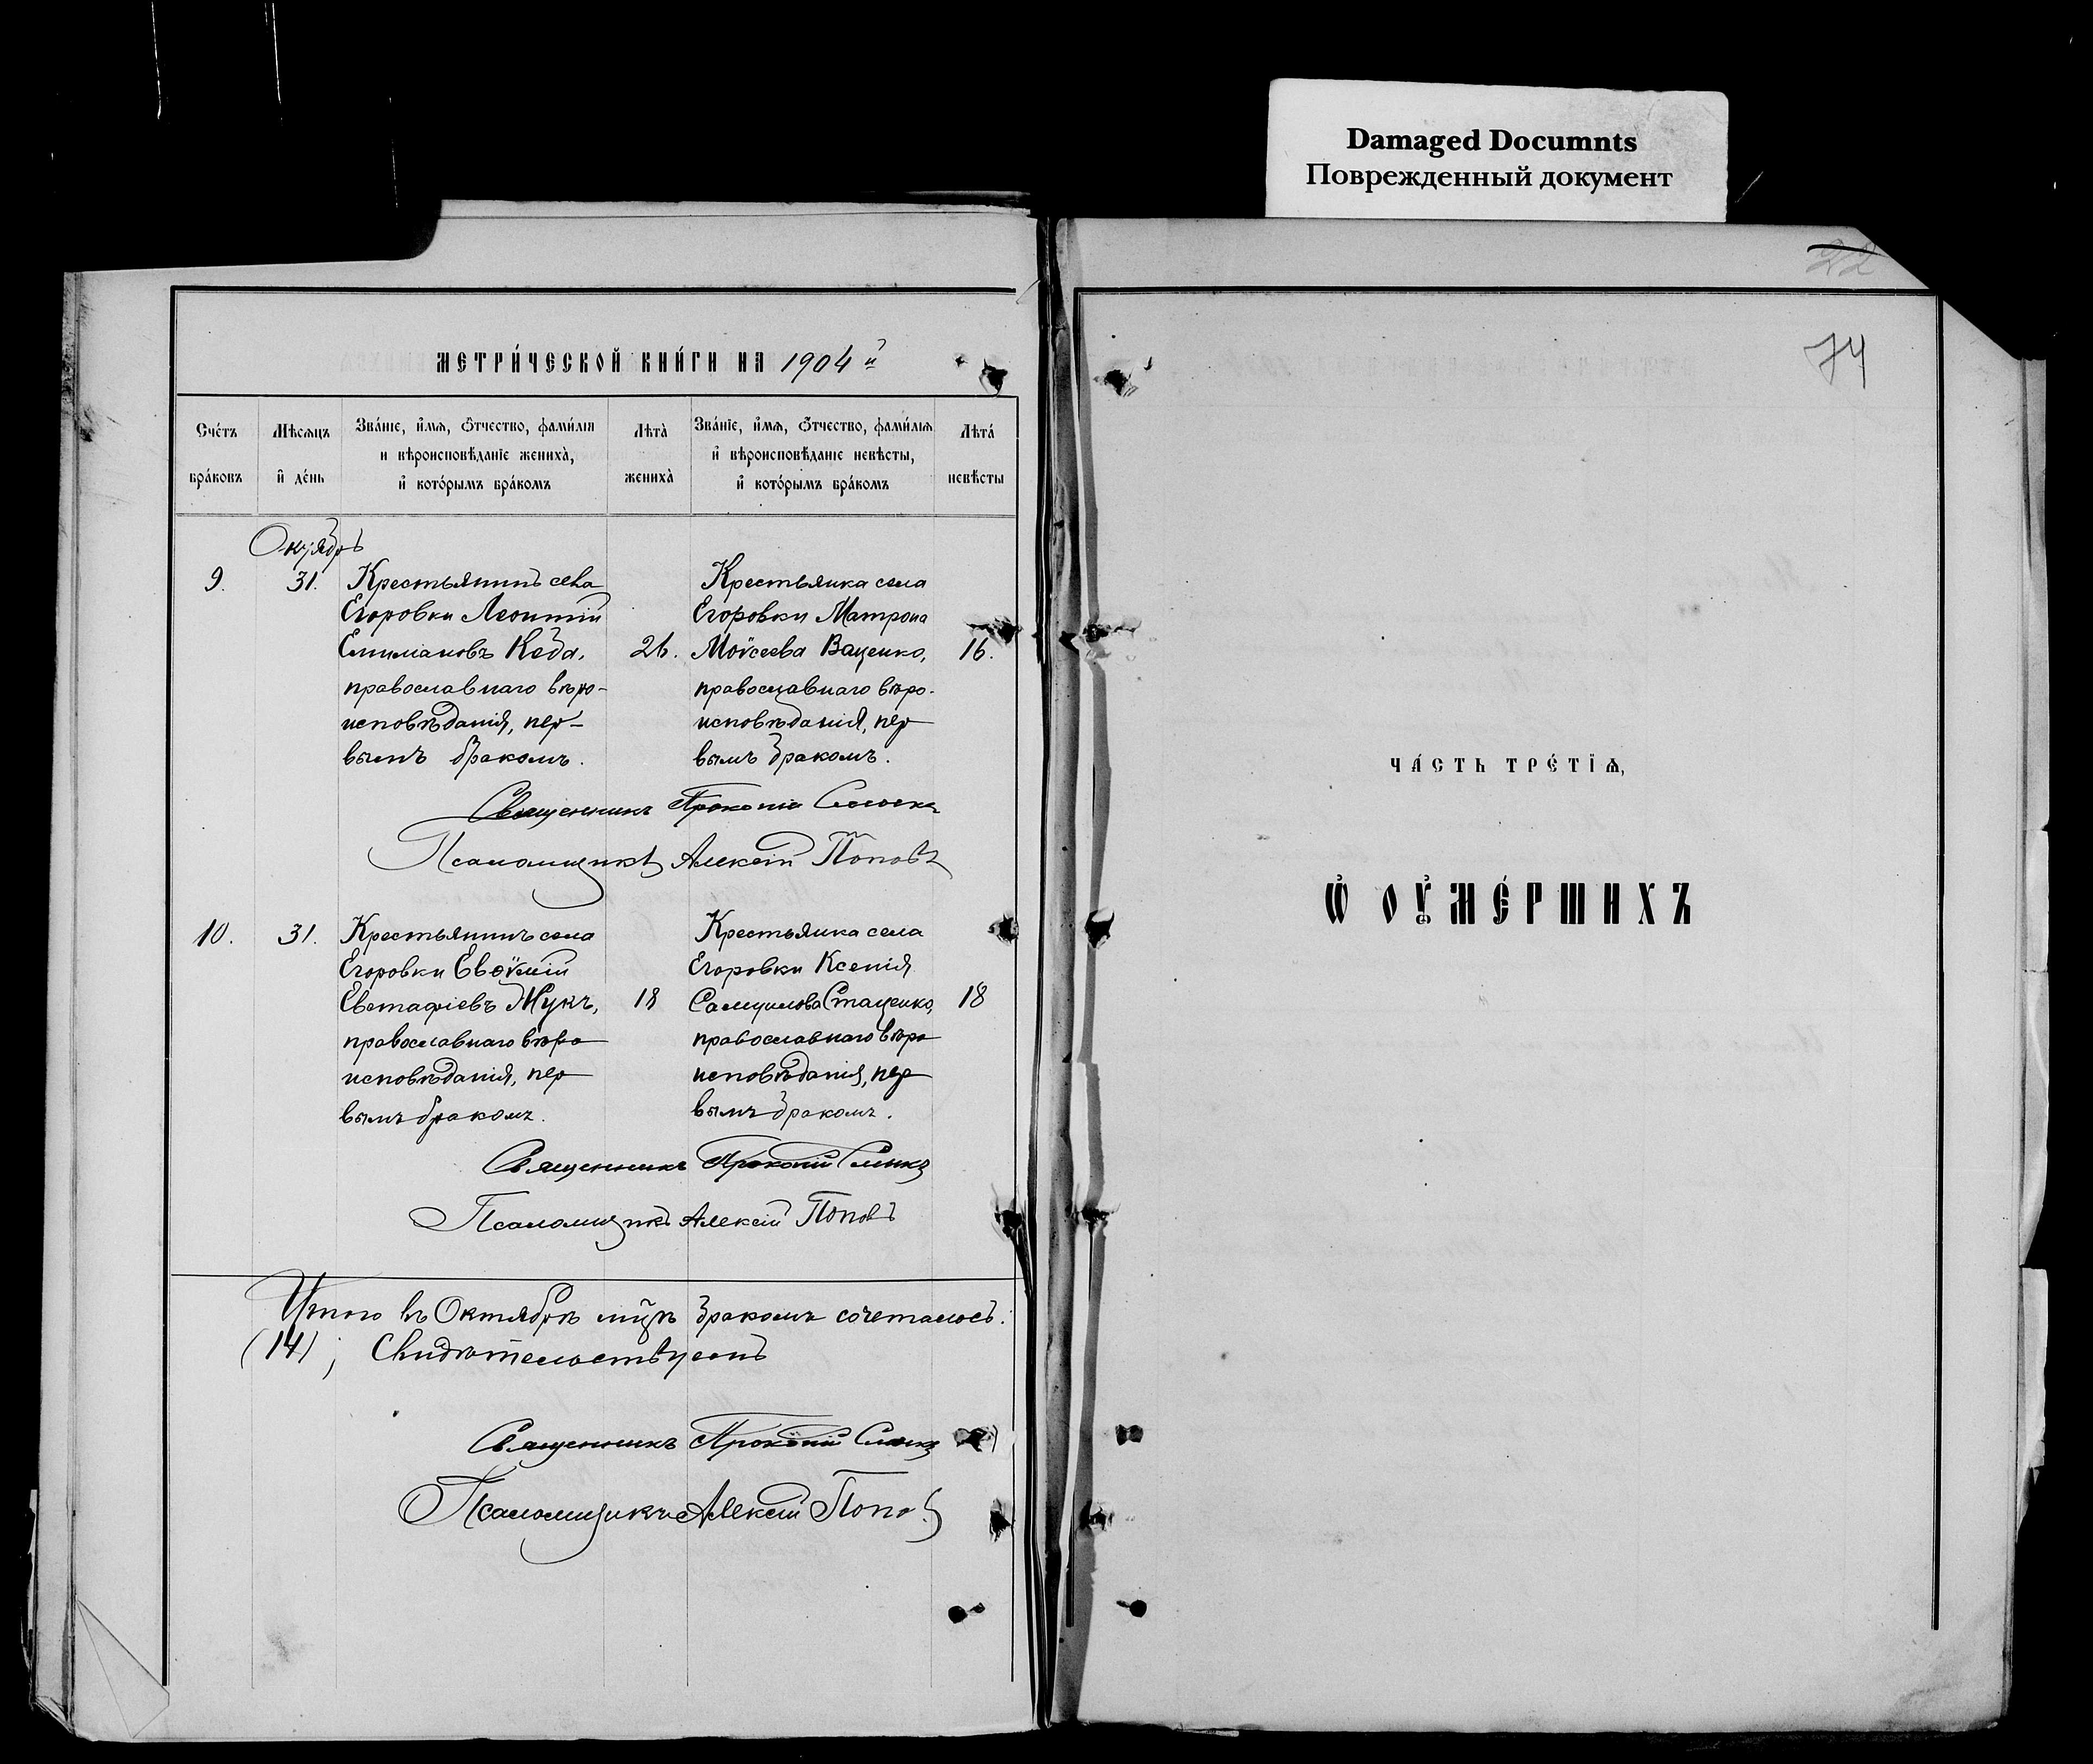 Damaged Documnts
Поврежденный документ
22
74
МЕТРИ́ЧЕСКОЙ КНИ́ГИ НА 1904 й
Сче́тъ бра́ковъ
Мѣсяцъ и҆ де́нь
Зва́нїе, и҆́мѧ, ѻ҆́тчество, фами́лїѧ
и вѣроисповѣ́данїе жениха̀,
и҆ кото́рымъ бра́комъ
Лѣта̀ жениха̀
Зва́нїе, и҆́мѧ, ѻ҆́тчество, фами́лїѧ
и҆ вѣроисповѣ́данїе невѣ́сты,
и҆ кото́рымъ бра́комъ
Лѣта́ невѣ́сты
9.
31.
Крестьянинъ села
Егоровки Леонтій
Кеда,
православнаго вѣро-
исповѣданія, пер-
вымъ бракомъ.
26.
Крестьянка села
Егоровки Матрона
Моѵсеева Ваценко,
православнаго вѣро-
исповѣданія, пер
вымъ бракомъ.
16.
Священникъ Прокопій
Псаломщикъ Алексій Поповъ
10.
31.
Крестьянинъ села
Егоровки Евѳѵмій
Евстафіевъ Жукъ,
православнаго вѣро
исповѣданія, пер
вымъ бракомъ.
18
Крестьянка села
Егоровки Ксенія
Самуилова Стаценко,
православнаго вѣро
исповѣданія, пер
вымъ бракомъ.
18
Священникъ Прокопій
Псаломщикъ Алексій Поповъ
Итого въ Октябрѣ м͠цѣ бракомъ сочеталось
(14); Свидѣтельствуемъ
Священникъ Прокопій
Псаломщикъ Алексій Поповъ
ЧА́СТЬ ТРЕ́ТЇѦ,
Ѡ҆ ОУ҆МЕ́РШИХЪ